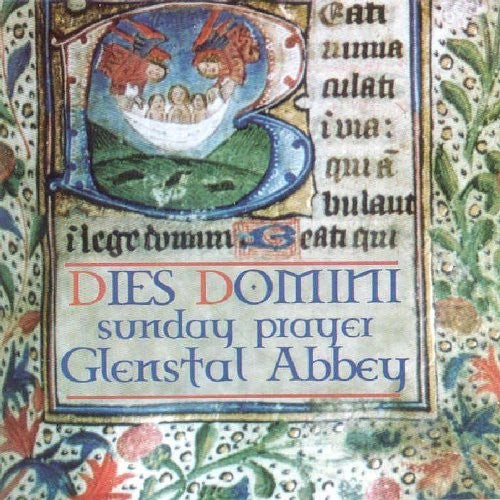 Eati
inma
culati
i via:
qui ā
bulaut
i lege domini Beati qui
DIES DOMINI
sunday prayer
Glenstal Abbey